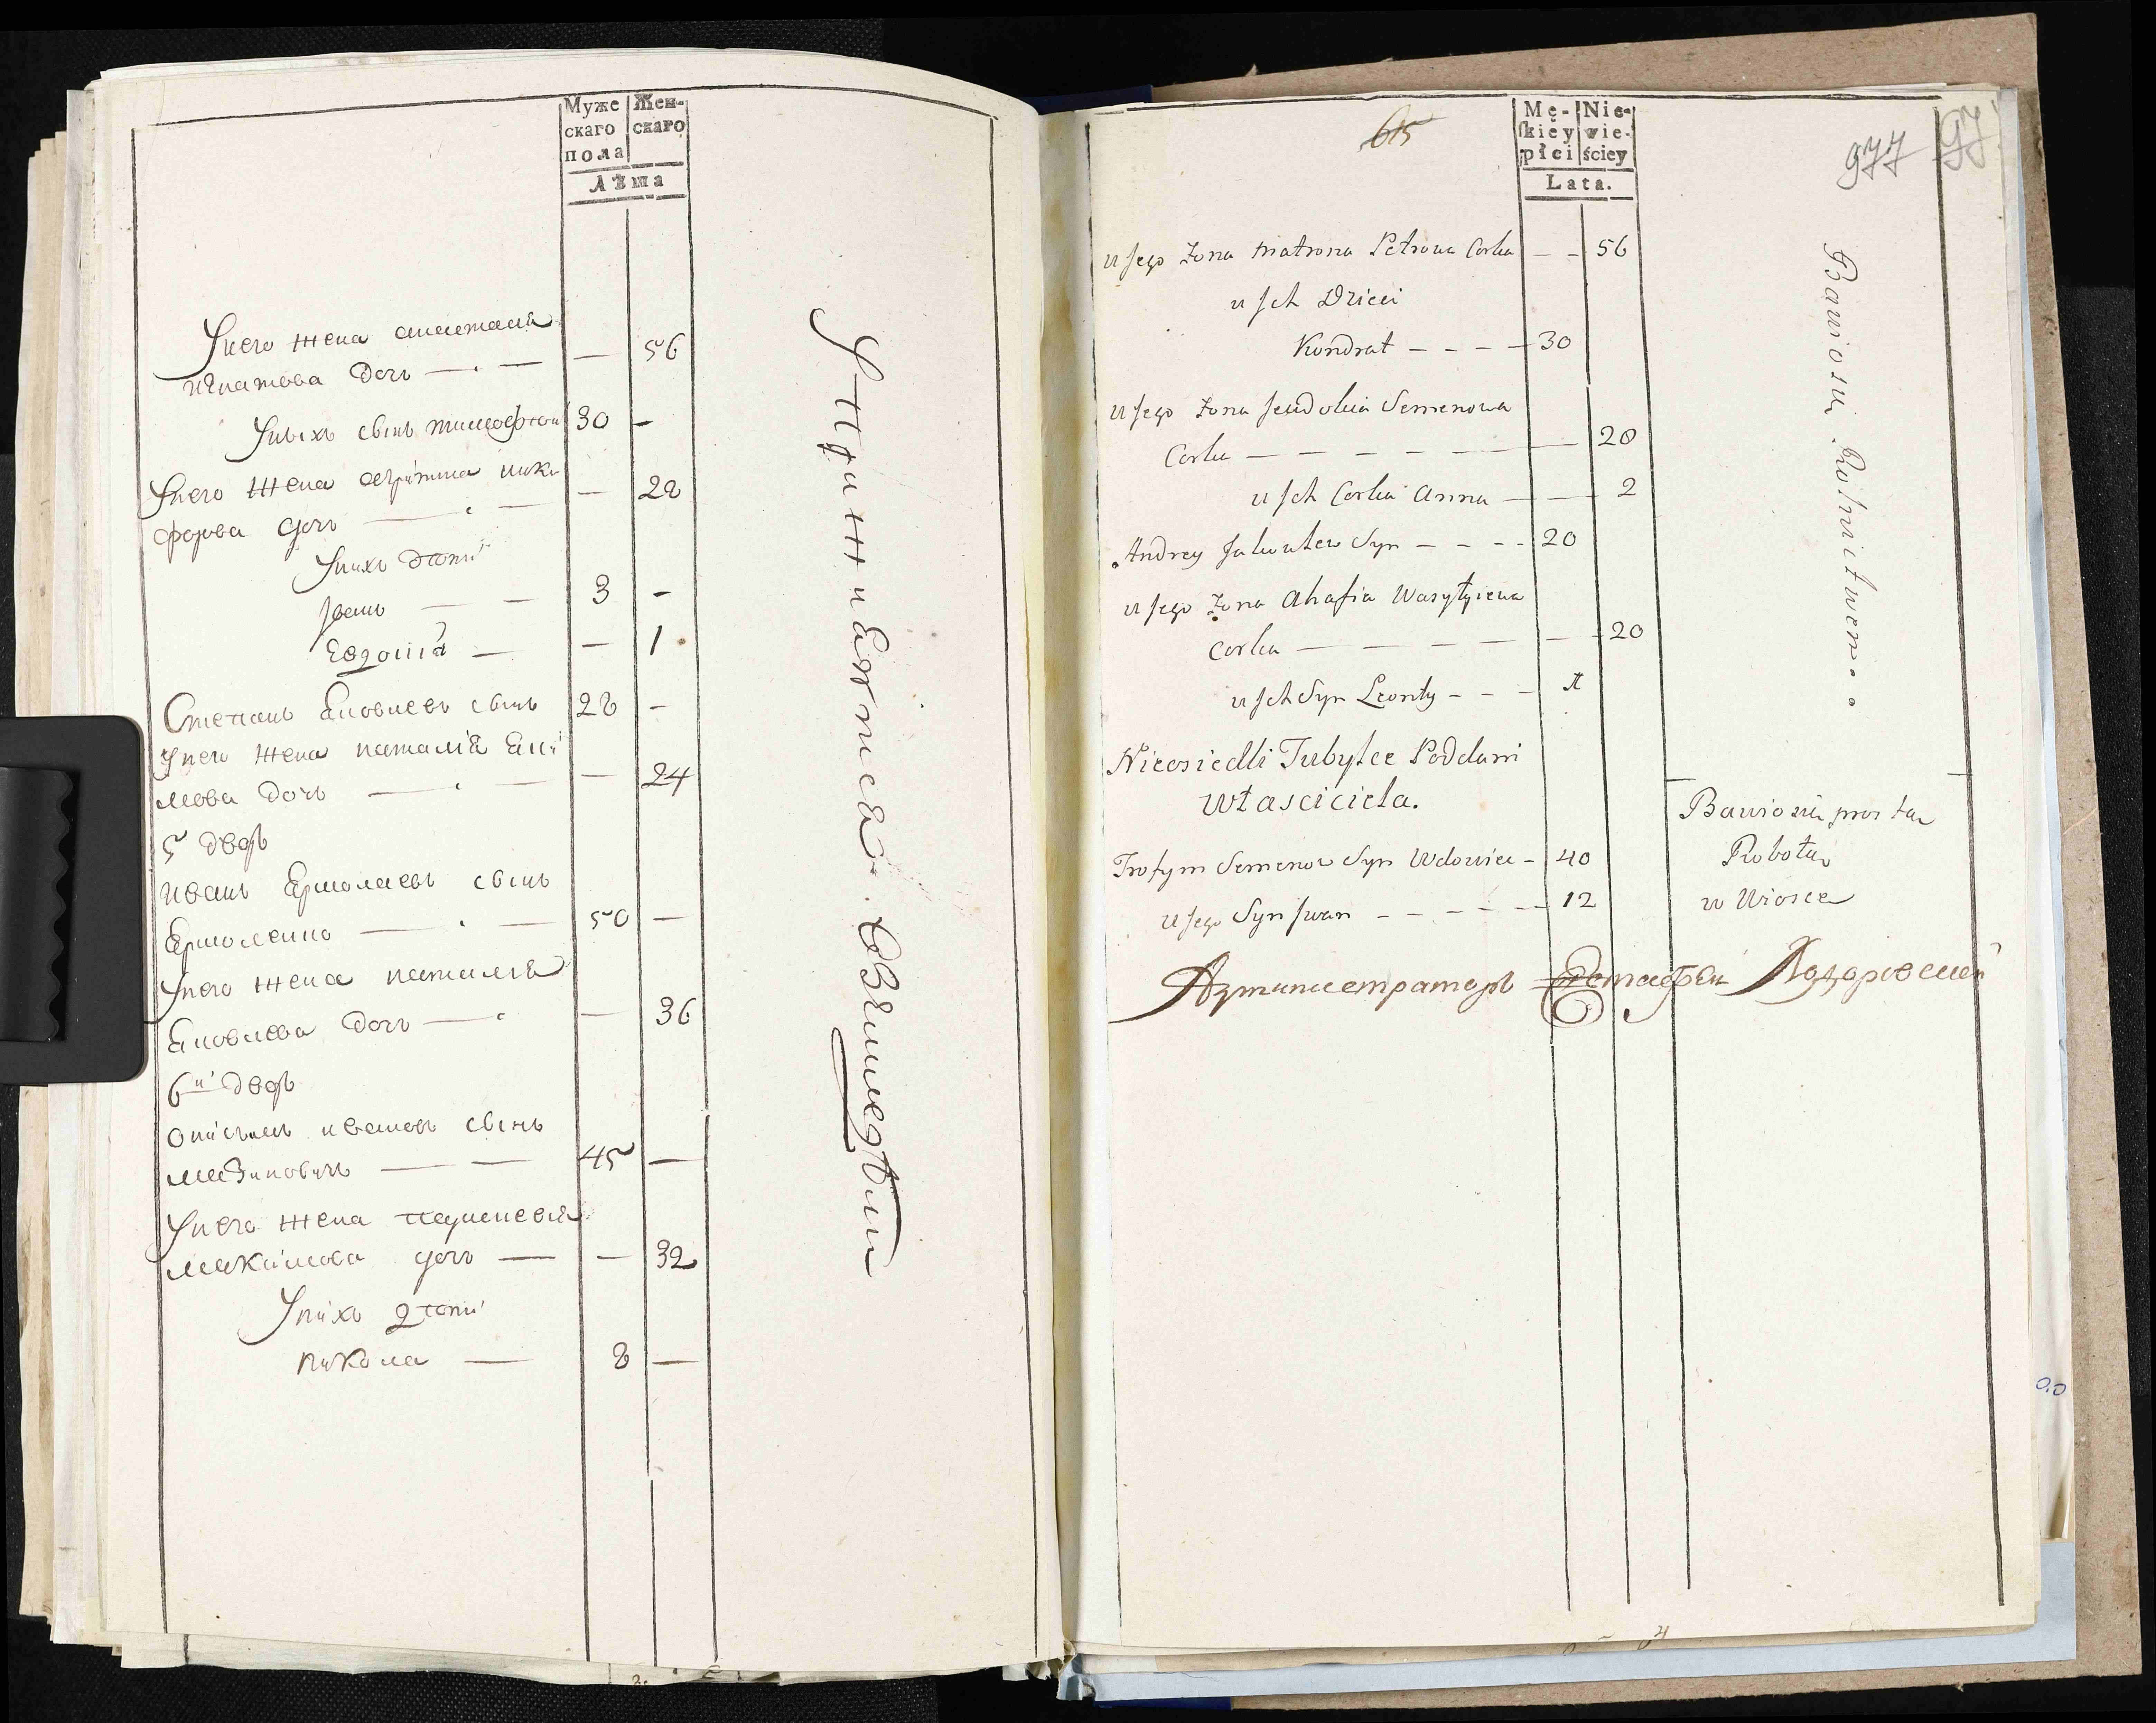 Муже
скаго
пола
Жен-
скаго
Лѣта
Унего жена анастасия
игнатова дочь — — — 56
Унихъ сынъ тимофеи 30 —
Унего жена агрипина ники
форова дочь — — — 22
Унихъ дѣти
Іванъ — — 3 —
Евдокия — — 1
Степанъ Яковлевъ сынъ 28 —
Унего жена наталия Яки
мова дочь — — — 24
5 дворъ
иванъ Ермолаевъ сынъ
Ермоленко — — 50 —
Унего жена наталия
Яковлева дочь — — 36
6й дворъ
онисимъ ивановъ сынъ
— — 45 —
Унего жена
макимова дочь — — 32
Унихъ дѣти
никола — 8 —
Упражняется. Взимледѣлии
65
Mę-
skiey
płci
Nie-
wie-
ściey
Lata.
977
97
u Jego Żona Matrona Petrowa Corka — — 56
u Jch Dzieci
Kondrat — — — — 30
u Jego Żona Jewdokia Semenowa
Corka — — — — — — — 20
u Jch Corka Anna — — — 2
Andrey Jakowlew Syn — — — — 20
u Jego Żona Ahafia Wasylyiewa
Corka — — — — — — 20
u Jch Syn Leonty — — —
Bawiosię Rolnictwem
Nieosiedli Tubylce Poddani
Własciciela.
Trofym Semenow Syn Wdowiec — 40
u Jego Syn Jwan — — — — — 12
Bawiosię prosta
Robota
w Wiosce
Администраторъ